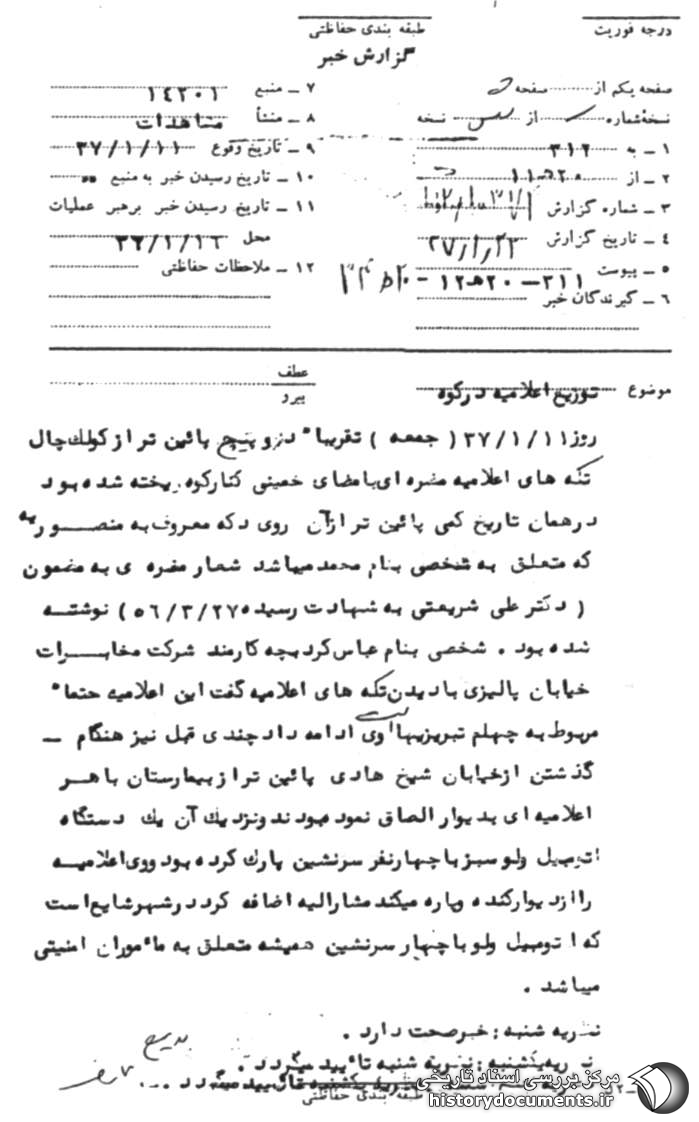 درجه فوریت
طبقه بندی حفاظتی
گزارش خبر
صفحه یکم از صفحه
نسخه شماره از نسخه
۱ ـ به ۳۱۲
۲ ـ از ۲۰ه۱۱
۳ ـ شماره گزارش
۴ ـ تاریخ گزارش ۳۷/۱/۲۳
۵ ـ پیوست
۶ ـ گیرندگان خبر ۳۱۱ ــ ۲۰ه۱۲ ــ
۷ ـ منبع ۱۴۲۰۱
۸ ـ منشأ مشاهدات
۹ ـ تاریخ وقوع ۳۷/۱/۱۱
۱۰ ـ تاریخ رسیدن خبر به منبع
۱۱ ـ تاریخ رسیدن خبر برهبر عملیات
محل ۳۷/۱/۱۶
۱۲ ـ ملاحظات حفاظتی
عطف
پیرو
موضوع توزیع اعلامیه در کوه
روز ۳۷/۱/۱۱ ( جمعه ) تقریبا" در پائین تر از کولک چال
تکه های اعلامیه مضره ای با مضای خمینی کنار کوه ریخته شده بود
در همان تاریخ کمی پائین تر از آن روی دکه معروف به منصوریه
که متعلق به شخصی بنام محمد میباشد شعار مضره ی به مضمون
( دکتر علی شریعتی به شهادت رسیده ۵۶/۳/۲۷ ) نوشته
شده بود . شخصی بنام عباس کرد بچه کارمند شرکت مخابرات
خیابان پالیزی با دیدن تکه های اعلامیه گفت این اعلامیه حتما"
مربوط به چهلم تبریزیها است وی ادامه داد چندی قبل نیز هنگام ــ
گذشتن از خیابان شیخ هادی پائین تر از بیمارستان باهر
اعلامیه ای بدیوار الصاق نموده بودند و نزدیک آن یک دستگاه
اتومبیل ولو سبز با چهار نفر سرنشین پارک کرده بود ووی اعلامیه
را از دیوار کنده وپاره میکند مشارالیه اضافه کرد در شهر شایع است
که اتومبیل ولو با چهار سرنشین همیشه متعلق به مأموران امنیتی
میباشد .
نظریه شنبه : خبر صحت دارد .
نظریه یکشنبه : نظریه شنبه تائید میگردد .
نظریه یکشنبه تائید میگردد .
طبقه بندی حفاظتی
مرکز بررسی اسناد تاریخی
historydocuments.ir